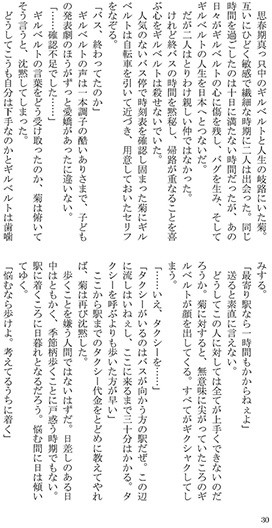 思春期真っ只中のギルベルトと人生の岐路にいた菊。
互いにひどく敏感で繊細な時期に二人は出会った。同じ
時間を過ごしたのは十日に満たない時間だったが、あの
日々がギルベルトの心に傷を残し、バグを生み、そして
ギルベルトの人生を日本へとつないだ。
だが二人はとりわけ親しい仲ではなかった。
けれど終バスの時間を黙秘し、帰路が重なることを喜
ぶ心をギルベルトは殺せないでいた。
人気のないバス停で時刻表を確認し固まった菊にギル
ベルトは自転車を引いて近づき、用意しておいたセリフ
をなぞる。
「バス、終わってたのか」
ギルベルトの声は一本調子の酷いありさまで、子ども
の発表劇のほうがずっと愛嬌があったに違いない。
「……確認不足でした……」
ギルベルトの言葉をどう受け取ったのか、菊は俯いて
そう言うと、沈黙してしまった。
どうしてこうも自分は下手なのかとギルベルトは歯噛
みする。
「最寄り駅なら一時間もかからねぇよ」
送ると素直に言えない。
どうしてこの人に対しては全てが上手くできないのだ
ろうか。菊に対すると、無意味に尖がっていたころのギ
ルベルトが顔を出してくる。すべてがギクシャクしてし
まう。
「……いえ、タクシーを……」
「タクシーがいるのはバスが向かう方の駅だぜ。この辺
に流しはいねぇし、ここに来るまで三十分はかかる。タ
クシーを呼ぶよりも歩いた方が早い」
ここから駅までのタクシー代金をとどめに教えてやれ
ば、菊は再び沈黙した。
歩くことを嫌う人間ではないはずだ。日差しのある日
中はともかく、季節柄歩くことに戸惑う時期でもない。
駅に着くころに日暮れとなるだろう。悩む間に日は傾い
てゆく。
「悩むなら歩けよ。考えてるうちに着く」
30